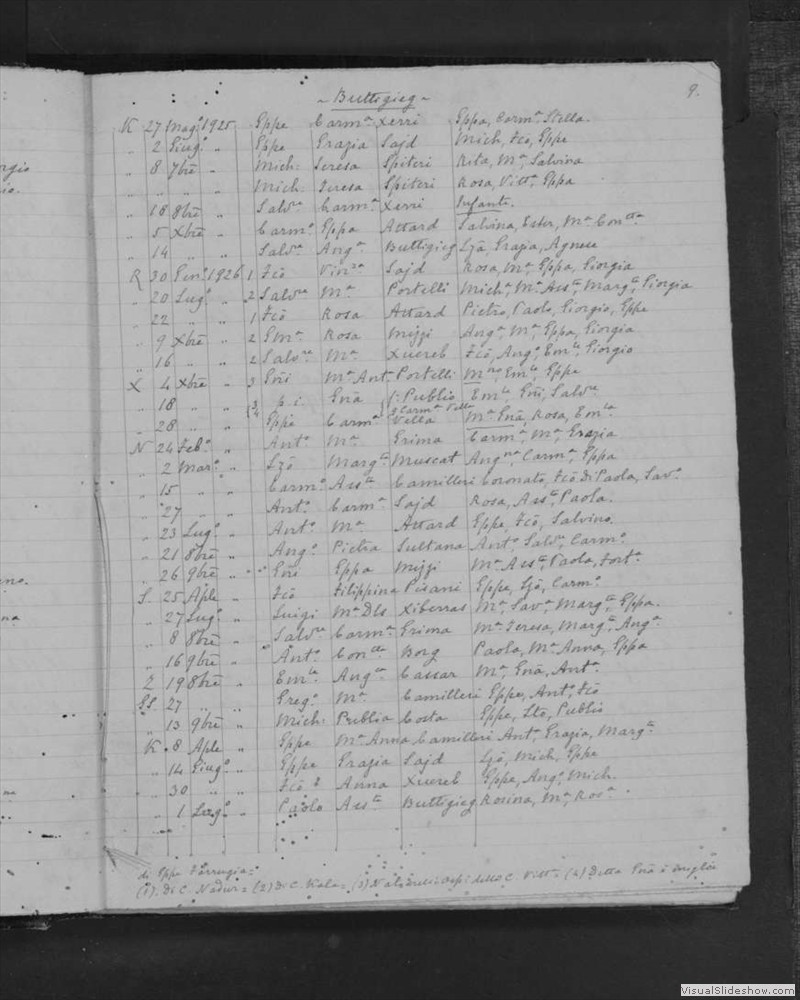 9.
~ Buttigieg ~
K 27 Magº 1925 Eppe Carmª Xerri Eppa, Carmª Stella.
" 2 Giugº " Eppe Grazia Sajd Mich, Fcõ, Eppe
" 8 7bre " Mich: Teresa Spiteri Rita, Mª Salvina
" " " " Mich: Teresa Spiteri Rosa, Vittª, Eppa
" 18 8bre " Salvre Carmª Xerri Infante.
" 5 Xbre " Carmº Eppa Attard Salvina, Ester, Mª Conctta
" 14 " " Salvre Angª Buttigieg Lzã, Grazia, Agnese
R 30 Genº 1926 1 Fcõ Vinza Sajd Rosa, Mª, Eppa, Giorgia
" 20 Lugº " 2 Salvre Mª Portelli Michª, Mª Assta, Margta, Giorgia
" 22 " " 1 Fcõ Rosa Attard Pietro, Paolo, Giorgio, Eppe
" 9 Xbre " 2 Emª Rosa Mizzi Angª, Mª, Eppa, Giorgia
" 16 " " 2 Salvre Mª Xuereb Fcõ, Angº, Emle, Giorgio
X 4 Xbre " 3 Gñi Mª Ant Portelli Mrno, Emle, Eppe
" 18 " " p.i Gnã f: Publio Emle, Gñi, Salvre
" 28 " " Eppe Carmª Vella Mª Gnã, Rosa, Emla
N 24 Febº " Antº Mª Grima Carmª, Mª, Grazia
" 2 Marº " Lzõ Margta Muscat Angna, Carmª, Eppa
" 15 " " Carmº Assta Camilleri Coronato, Fcõ di Paola, Savº
" 27 " " Antº Carmª Sajd Rosa, Assta, Paola.
" 23 Lugº " Antº Mª Attard Eppe, Fcõ, Salvino.
" 21 8bre " Angº Pietra Sultana Antº, Salvre, Carmº
" 26 9bre " " Gñi Eppa Mizzi Mª Assta, Paola, Fortª
S. 25 Aple " Fcõ Filippina Pisani Eppe, Lzõ, Carmº
" 27 Lugº " Luigi Mª Dls Xiberras Mª, Savª, Margta, Eppa.
" 8 8bre " Salvre Carmª Grima Mª Teresa, Margta, Angª
" 16 9bre " Antº Conctta Borg Paola, Mª Anna, Eppa
Z 19 8bre " Emle Angna Cassar Mª, Gnã, Antª
Gs. 27 " " Gregº Mª Camilleri Eppe, Antº, Fcõ
" 13 9bre " Mich: Publia Costa Eppe, Ltõ, Publio
K 8 Aple " Eppe Mª Anna Camilleri Antª, Grazia, Margta
" 14 Giugº " Eppe Grazia Sajd Lzõ, Mich, Eppe
" 30 " " Fcõ Anna Xuereb Eppe, Angº, Mich.
" 1 Lugº " Paolo Assta Buttigieg Rosina, Mª, Rosª
di Eppe Farrugia =
(1). Di C. Nadur = (2) Di C. Xala =
VisualSlideshow.com